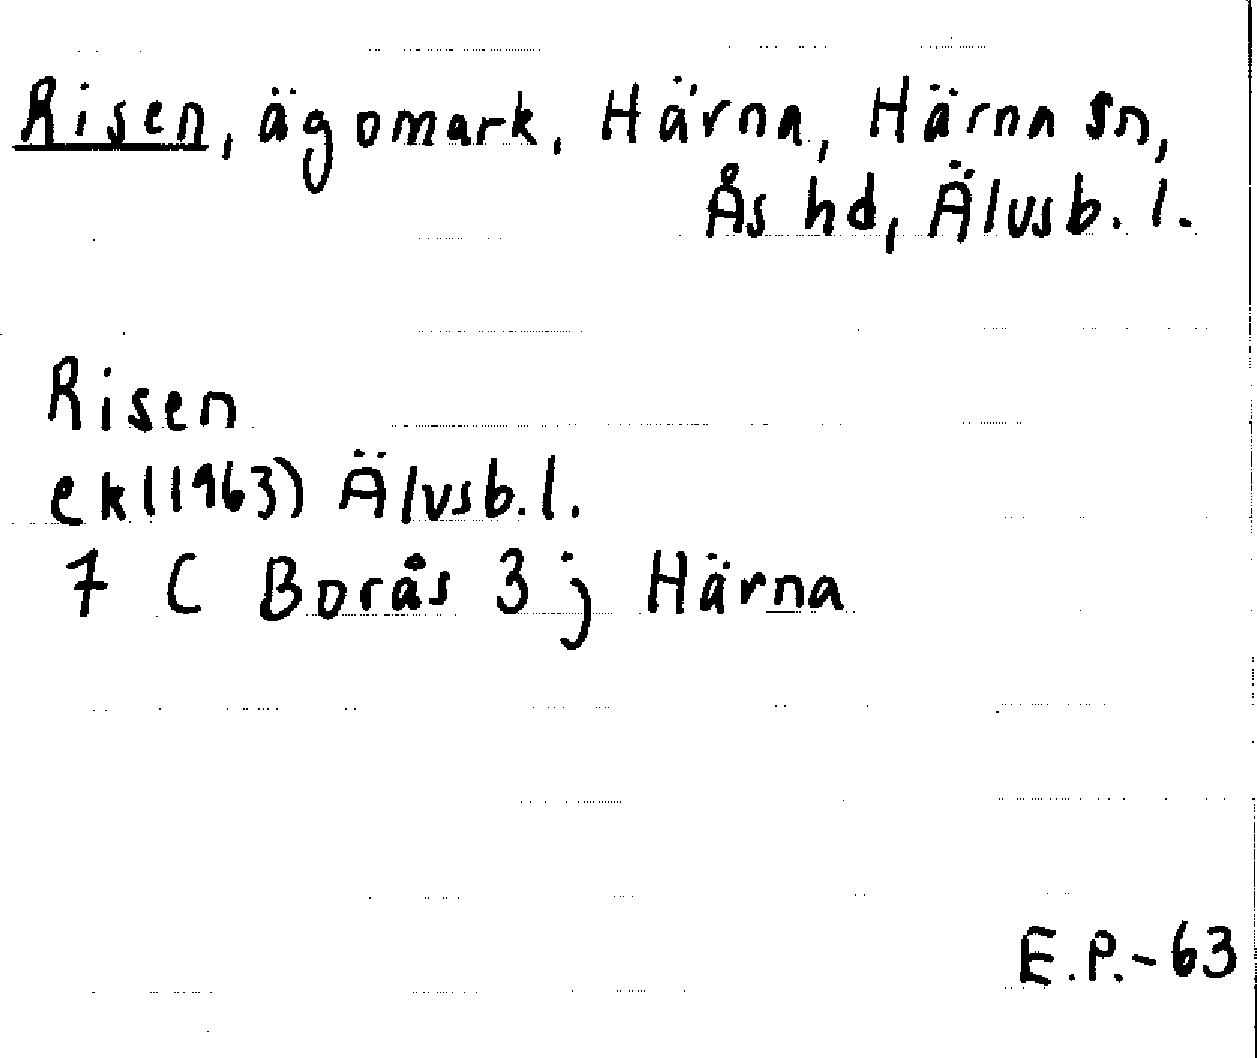 Risen, ägomark, Härna, Härna sn,
Ås hd, Älvsb. l.
Risen
ek(1963) Älvsb. l.
7 C Borås 3 j Härna
E.P.-63